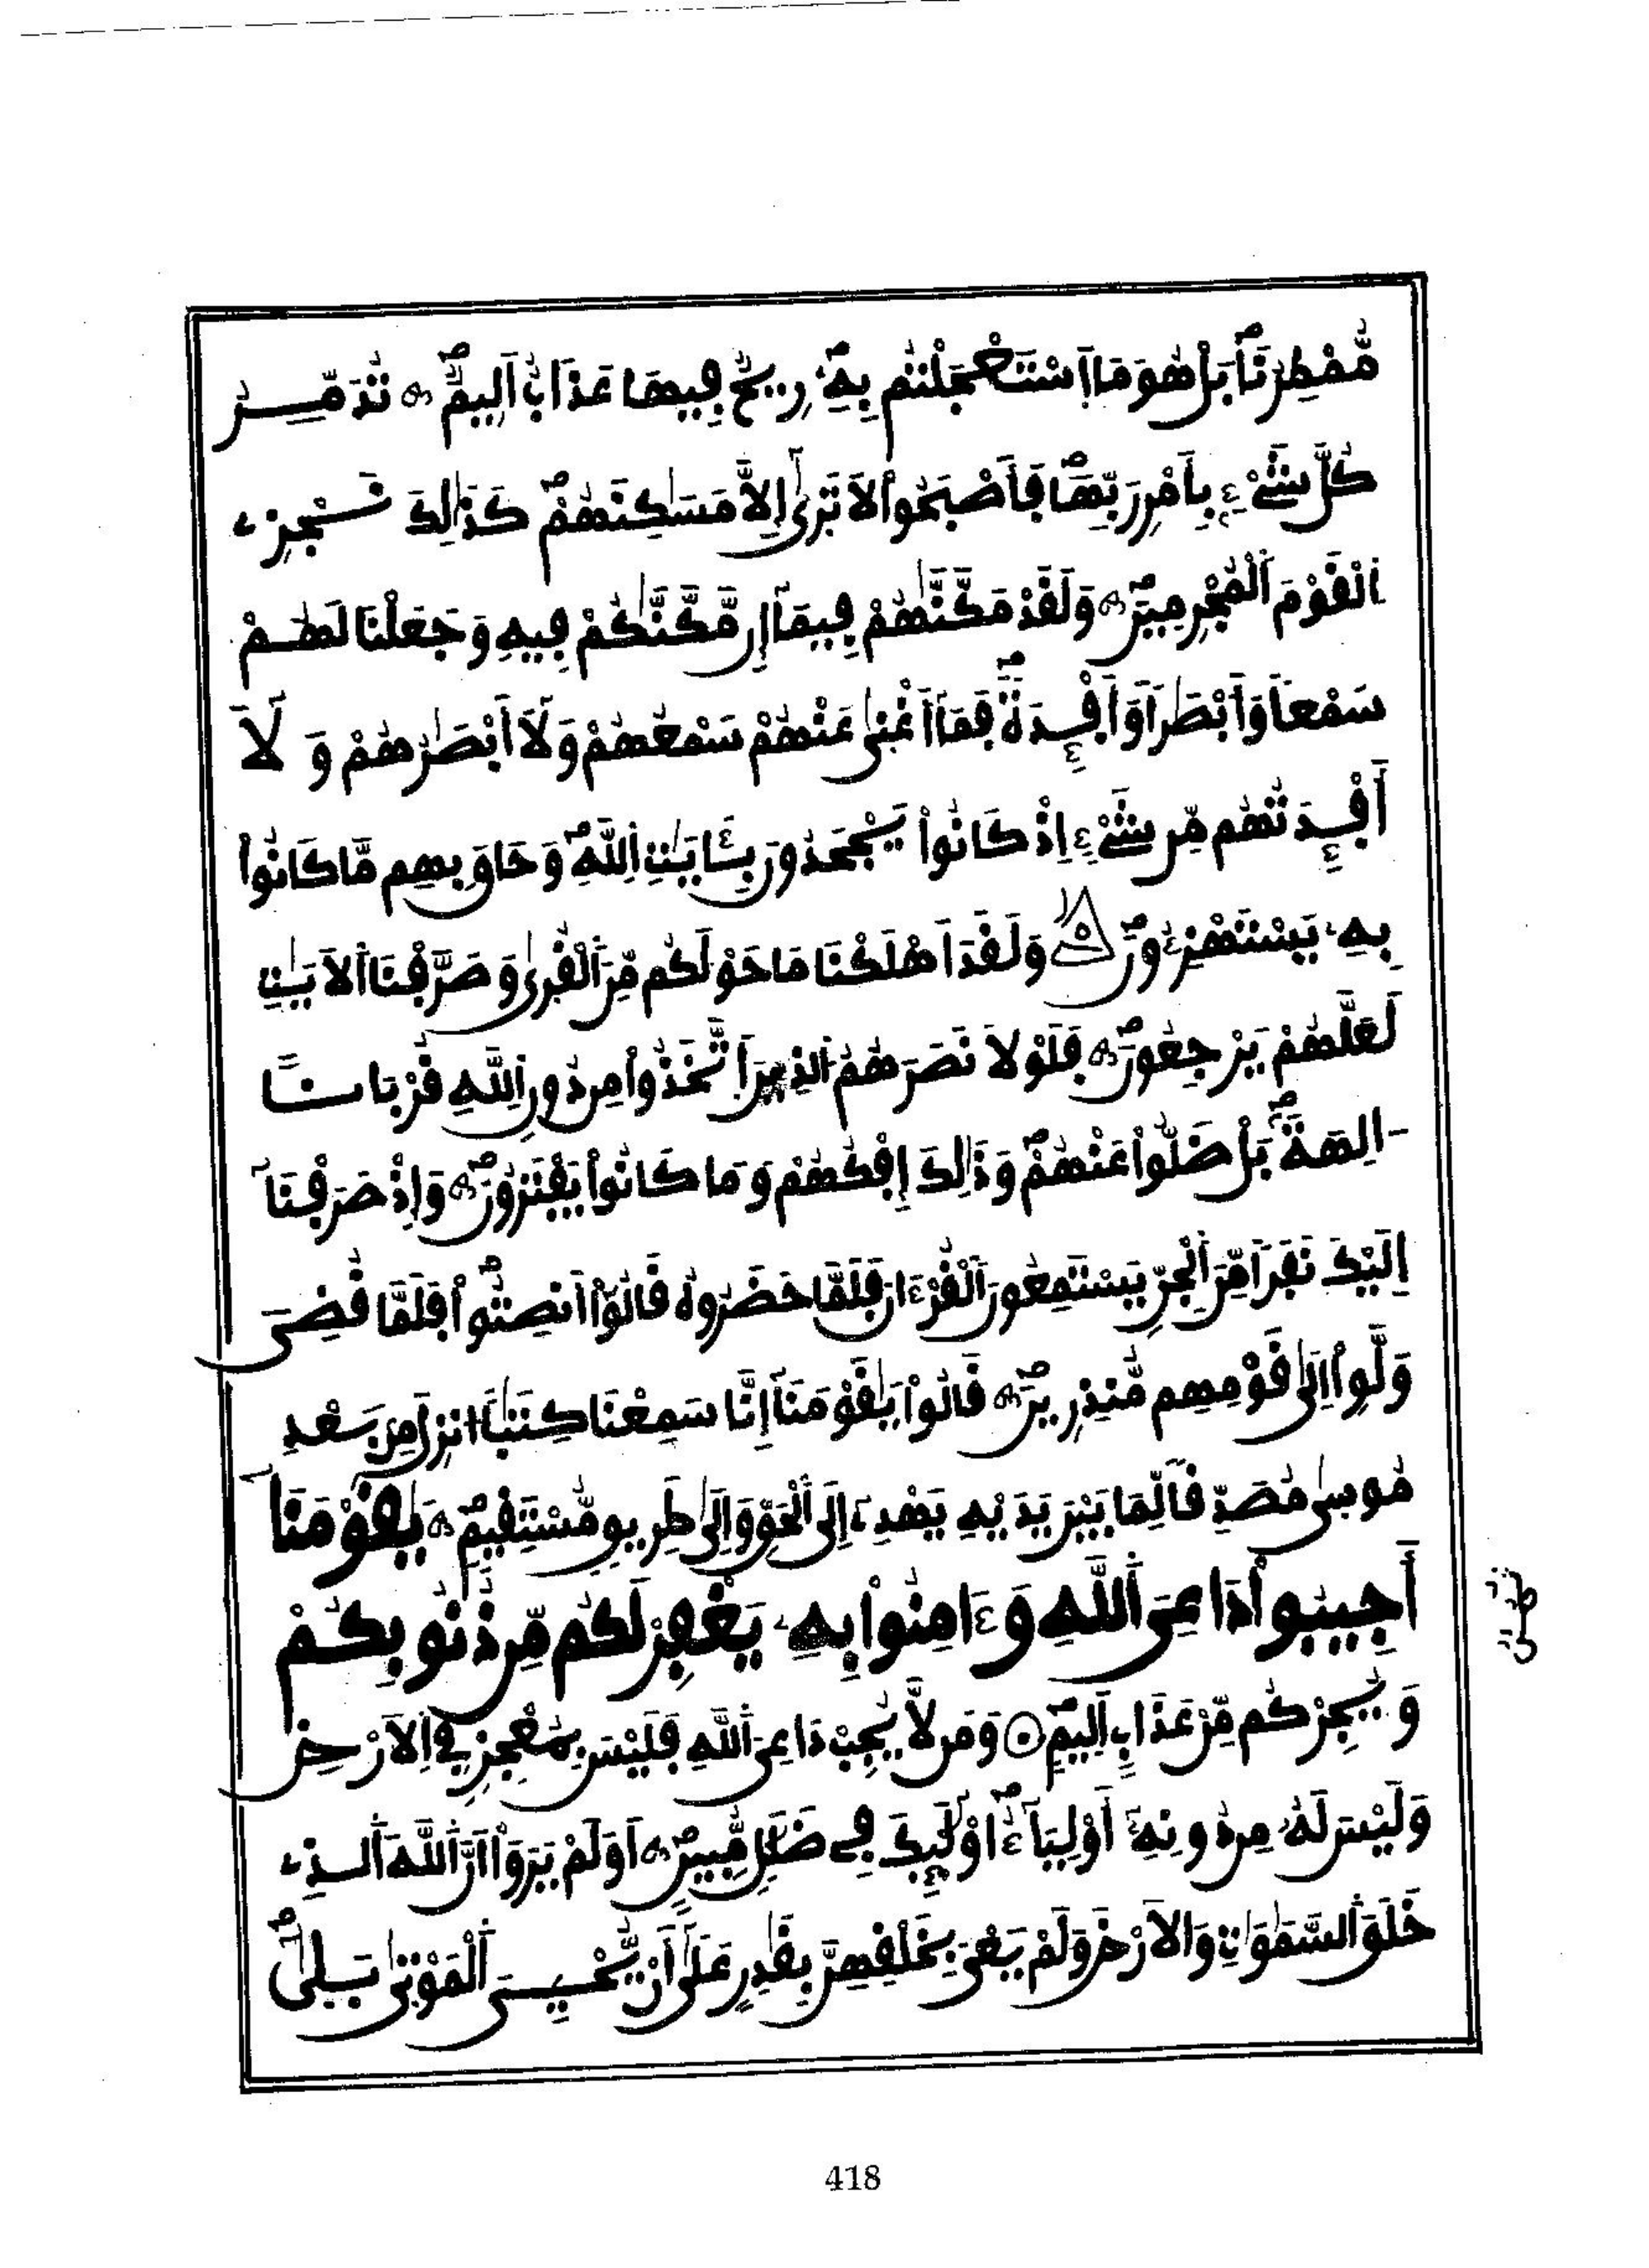 مُّمْطِرُنَا بَلْ هُوَ مَا اَسْتَعْجَلْتُم بِهِۦ رِيحٌ فِيهَا عَذَابٌ اَلِيمٌ تُدَمِّرُ
كُلَّ شَےْءِۢ بِأَمْرِ رَبِّهَا فَأَصْبَحُواْ لَا تَرَىٰٓ إِلَّا مَسَٰكِنَهُمْ كَذَٰلِكَ نَجْزِے
اِ۬لْقَوْمَ اَ۬لْمُجْرِمِينَ وَلَقَدْ مَكَّنَّٰهُمْ فِيمَآ إِن مَّكَّنَّٰكُمْ فِيهِ وَجَعَلْنَا لَهُمْ
سَمْعاً وَأَبْصَٰراً وَأَفْـِٕدَةً فَمَآ أَغْنَىٰ عَنْهُمْ سَمْعُهُمْ وَلَآ أَبْصَٰرُهُمْ وَلَآ
أَفْـِٕدَتُهُم مِّن شَےْءٍ اِذْ كَانُواْ يَجْحَدُونَ بِـَٔايَٰتِ اِ۬للَّهِ وَحَاقَ بِهِم مَّا كَانُواْ
بِهِۦ يَسْتَهْزِءُونَ وَلَقَدَ اَهْلَكْنَا مَا حَوْلَكُم مِّنَ اَ۬لْقُرَىٰ وَصَرَّفْنَا اَ۬لَايَٰتِ
لَعَلَّهُمْ يَرْجِعُونَ فَلَوْلَا نَصَرَهُمُ اُ۬لذِينَ اَ۪تَّخَذُواْ مِن دُونِ اِ۬للَّهِ قُرْبَاناً
ـالِهَةَۢ بَلْ ضَلُّواْ عَنْهُمْ وَذَٰلِكَ إِفْكُهُمْ وَمَا كَانُواْ يَفْتَرُونَ وَإِذْ صَرَفْنَآ
إِلَيْكَ نَفَراً مِّنَ اَ۬لْجِنِّ يَسْتَمِعُونَ اَ۬لْقُرْءَانَ فَلَمَّا حَضَرُوهُ قَالُوٓاْ أَنصِتُواْ فَلَمَّا قُضِىَ
وَلَّوِاْ اِلَىٰ قَوْمِهِم مُّنذِرِينَ قَالُواْ يَٰقَوْمَنَآ إِنَّا سَمِعْنَا كِتَٰباً ا۟نزِلَ مِنۢ بَعْدِ
مُوسَىٰ مُصَدِّقاً لِّمَا بَيْنَ يَدَيْهِ يَهْدِےٓ إِلَى اَ۬لْحَقِّ وَإِلَىٰ طَرِيقٍ مُّسْتَقِيمٍ يَٰقَوْمَنَآ
أَجِيبُواْ دَاعِىَ اَ۬للَّهِ وَءَامِنُواْ بِهِۦ يَغْفِرْ لَكُم مِّن ذُنُوبِكُمْ
وَيُجِرْكُم مِّنْ عَذَابٍ اَلِيمٍ وَمَن لَّا يُجِبْ دَاعِىَ اَ۬للَّهِ فَلَيْسَ بِمُعْجِزٍ فِے اِ۬لَارْضِ
وَلَيْسَ لَهُۥ مِن دُونِهِۦٓ أَوْلِيَآءُ اُوْلَٰٓئِكَ فِے ضَلَٰلٍ مُّبِينٍ اَوَلَمْ يَرَوَاْ اَنَّ اَ۬للَّهَ اَ۬لذِے
خَلَقَ اَ۬لسَّمَٰوَٰتِ وَالَارْضَ وَلَمْ يَعْىَ بِخَلْقِهِنَّ بِقَٰدِرٍ عَلَىٰٓ أَنْ يُّحْيِىَ اَ۬لْمَوْتَىٰ بَلَىٰ
418